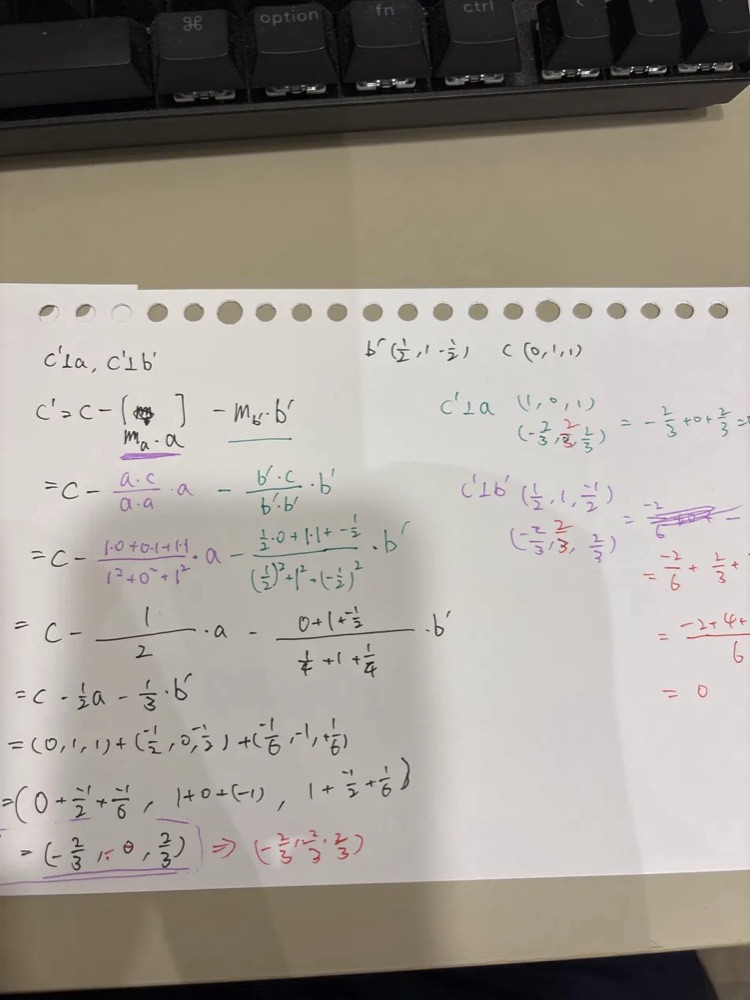 ⌘ option fn ctrl
c'⊥a, c'⊥b'
c' = c - [ ] - m_b'·b'
m_a·a
= c - (a·c)/(a·a) ·a - (b'·c)/(b'·b') ·b'
= c - (1·0+0·1+1·1)/(1²+0²+1²) ·a - (½·0+1·1+-½)/((½)²+1²+(-½)²) ·b'
= c - 1/2 ·a - (0+1+-½)/(¼+1+¼) ·b'
= c - ½a - ⅓·b'
= (0,1,1)+(-1/2,0,-1/2)+(-1/6,-1,+1/6)
= (0+-1/2+-1/6, 1+0+(-1), 1+-1/2+1/6)
= (-2/3, 0, 2/3) ⇒ (-2/3, 2/3, 2/3)
b'(½,1-½) c(0,1,1)
c'⊥a (1,0,1)
(-2/3, 2/3, 2/3) = -2/3+0+2/3=0
c'⊥b' (½,1,-1/2)
(-2/3, 2/3, 2/3) =
= -2/6 + 2/3 +
= (-2+4+)/6
= 0